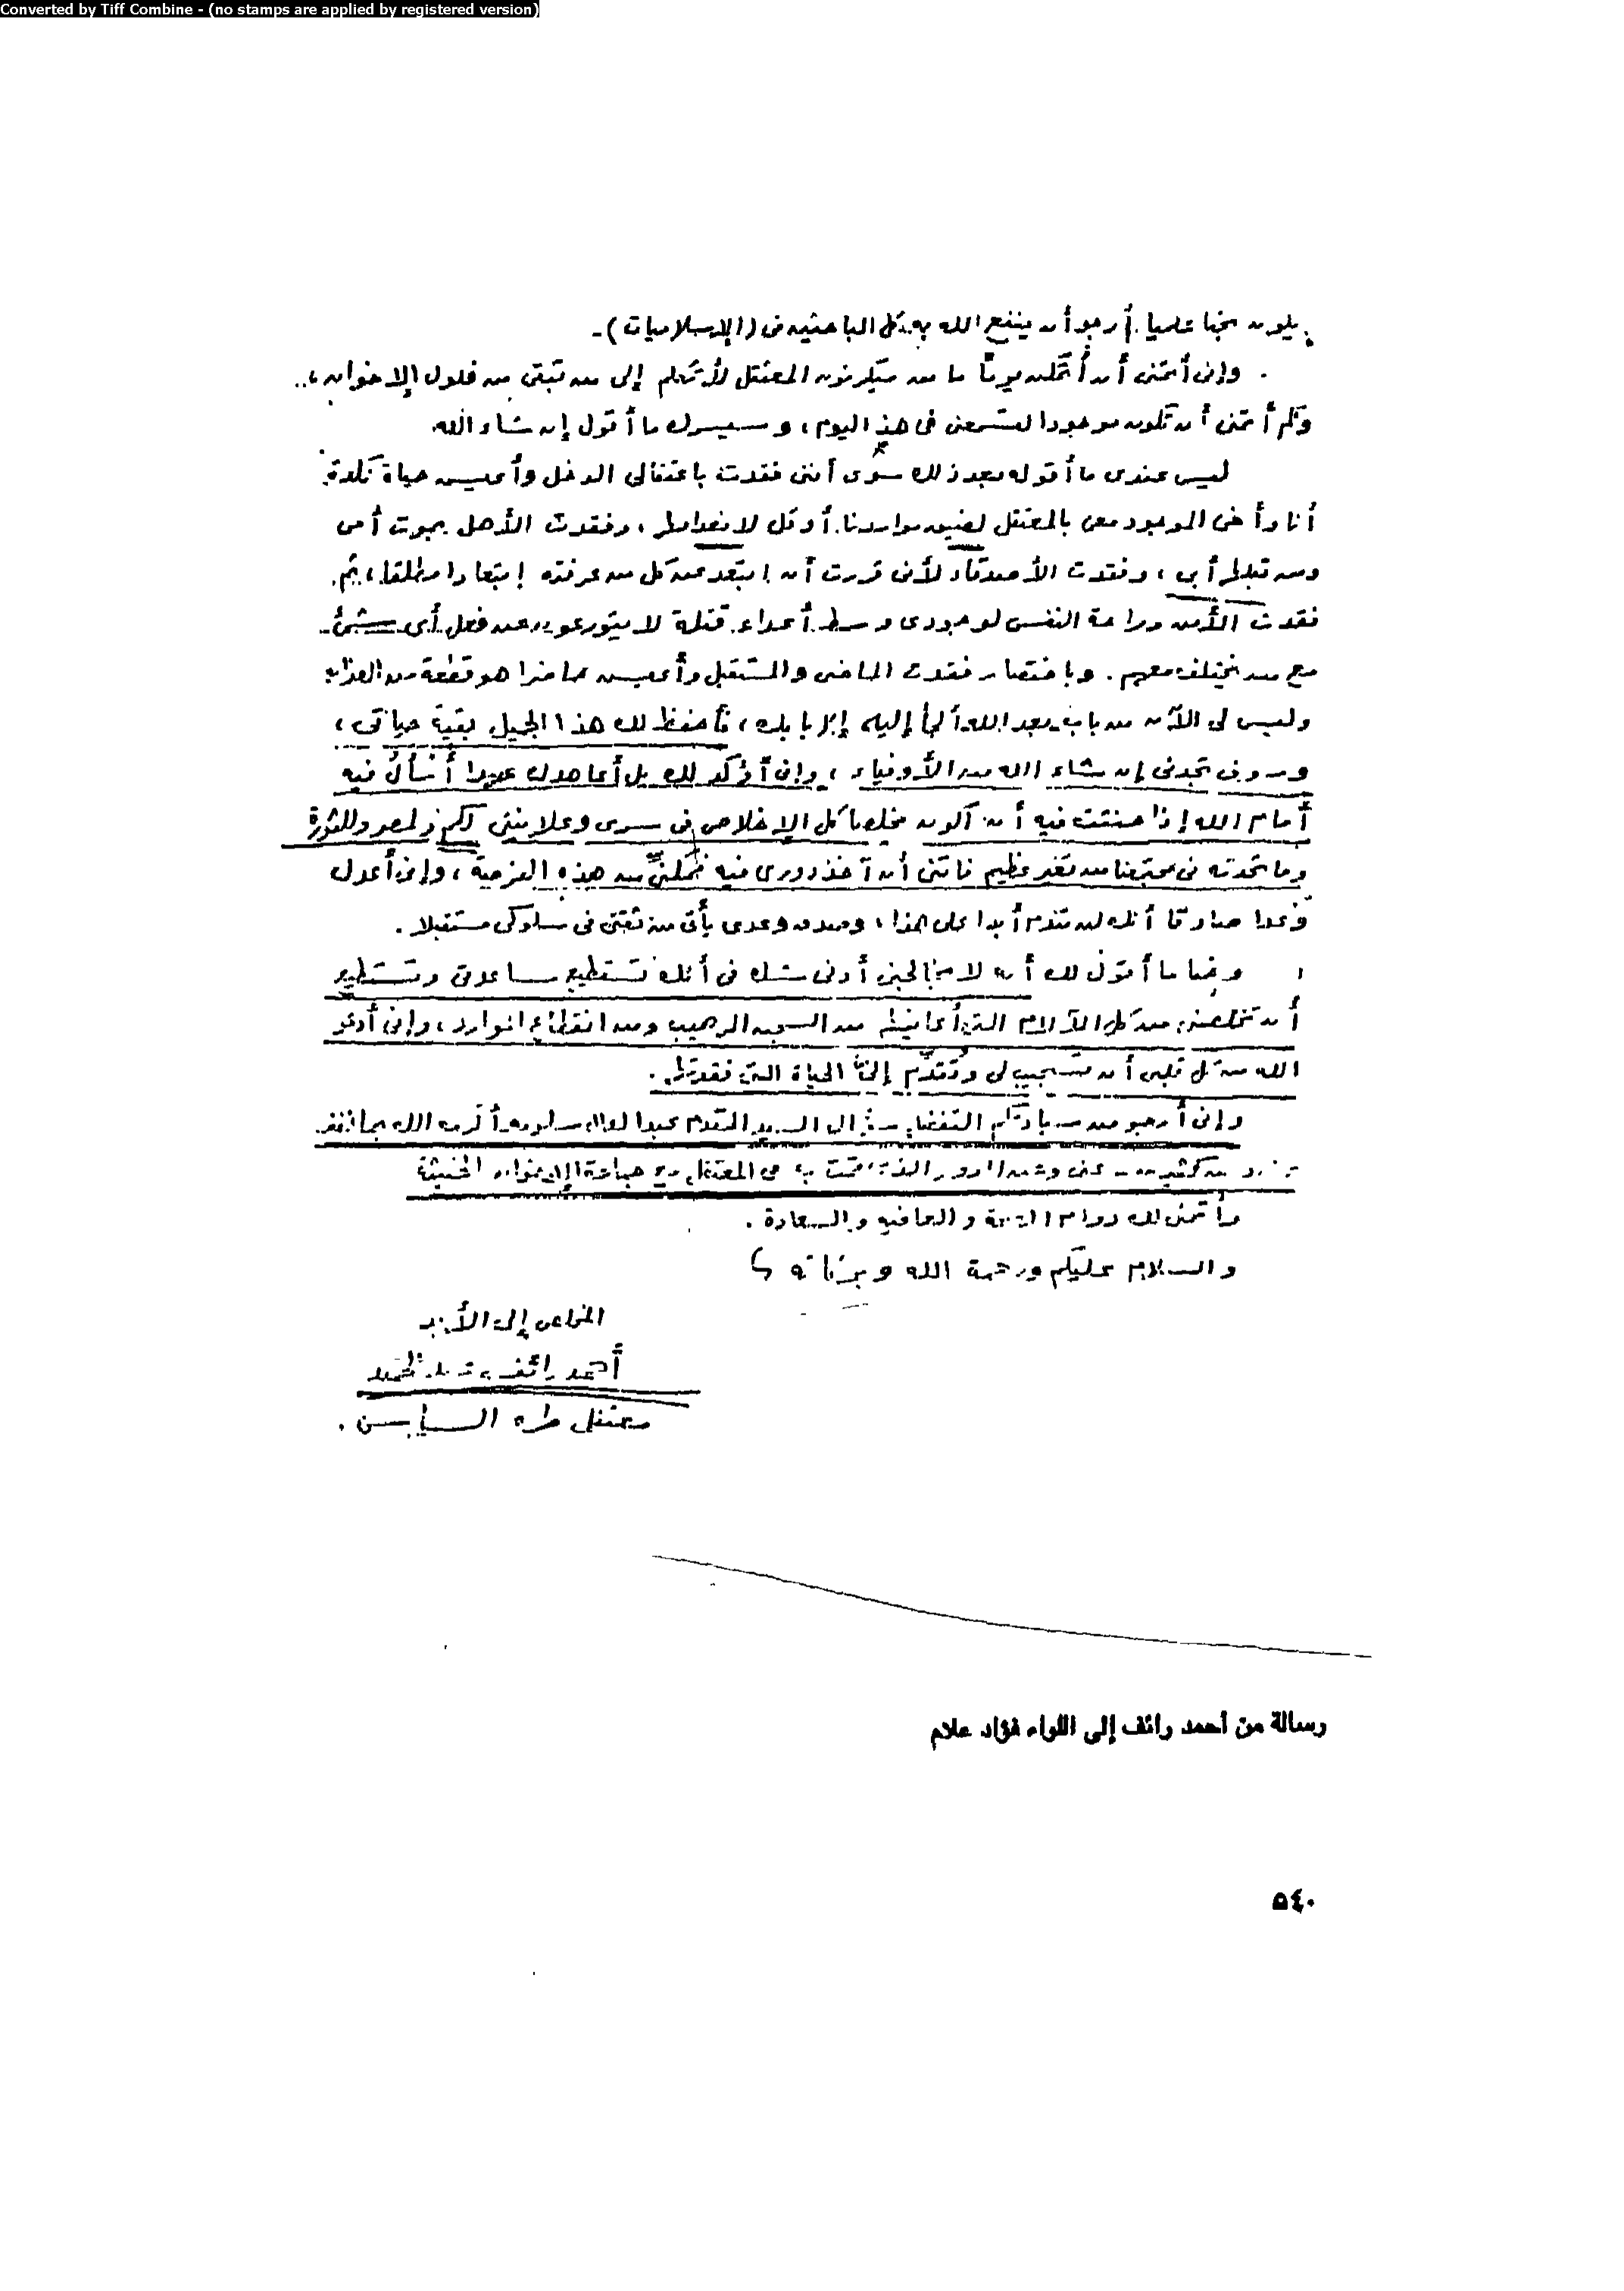 Converted by Tiff Combine - (no stamps are applied by registered version)
يكون بحثا علميا أرجو أن ينفع الله به كل الباحثين فى (الإسلاميات) -
وإنى أتمنى أن أتمكن يوماً ما من ميكرفون المعتقل لأتكلم إلى من تبقى من فلول الإخوان ..
وكم أتمنى أن تكون موجودا لتسمعنى فى هذا اليوم ، وسيسرك ما أقول إن شاء الله
ليس عندى ما أقوله بعد ذلك سوى أننى فقدت باعتقالى الدخل وأعيش حياة
أنا وأخى الموجود معى بالمعتقل لضيق مواردنا أو قل لانعدامها ، وفقدت الأهل بموت أمى
ومن قبلها أبى ، وفقدت الأصدقاء لأنى قررت أن ابتعد عن كل من عرفته إبتعادا مطلقا ، ثم
فقدت الأمن وراحة النفس لوجودى وسط أعداء قتلة لا يتورعون عن فعل أى شئ
مع من يختلف معهم . وباختصار فقدت الماضى والمستقبل وأعيش حاضرا هو قطعة من العذاب
وليس لى الآن من باب بعد الله ألجأ إليه إلا بابك ، فأحفظ لك هذا الجميل بقية حياتى ،
وسوف تجدنى إن شاء الله من الأوفياء ، وإنى أؤكد لك بل أعاهدك عهدا أُسأل فيه
أمام الله إذا حنثت فيه أن أكون مخلصا كل الإخلاص فى سرى وعلانيتى لكم ولمصر وللثورة
وما تحدثه فى مجتمعنا من تغير عظيم فاتنى أن آخذ دورى فيه فمكنى من هذه الفرصة ، وإنى أعدك
وعدا صادقا أنك لن تندم أبدا على هذا ، وصدق وعدى يأتى من ثقتى فى سلوكى مستقبلا .
وختاما أقول لك أنه لا يخالجنى أدنى شك فى أنك تستطيع مساعدتى وتستطيع
أن تخلصنى من كل الآلام التى أعانيها من السجن الرهيب ومن انقطاع الموارد ، وإنى أدعو
الله من كل قلبى أن تستجيب لى وتُقدّم إلىّ الحياة التى فقدتها .
وإنى أرجو من سيادتكم التفضل بسؤال السيد المقدم عبد العال سلومه أكرمه الله
عنى وعن الدور الذى قمت به فى المعتقل مع جماعة الإخوان الخبيثة
وأتمنى لك دوام الصحة والعافيه والسعادة .
والسلام عليكم ورحمة الله وبركاته
المخلص إلى الأبد
أحمد رائف
معتقل طره السياسى .
رسالة من أحمد رائف إلى اللواء فؤاد علام
٥٤٠